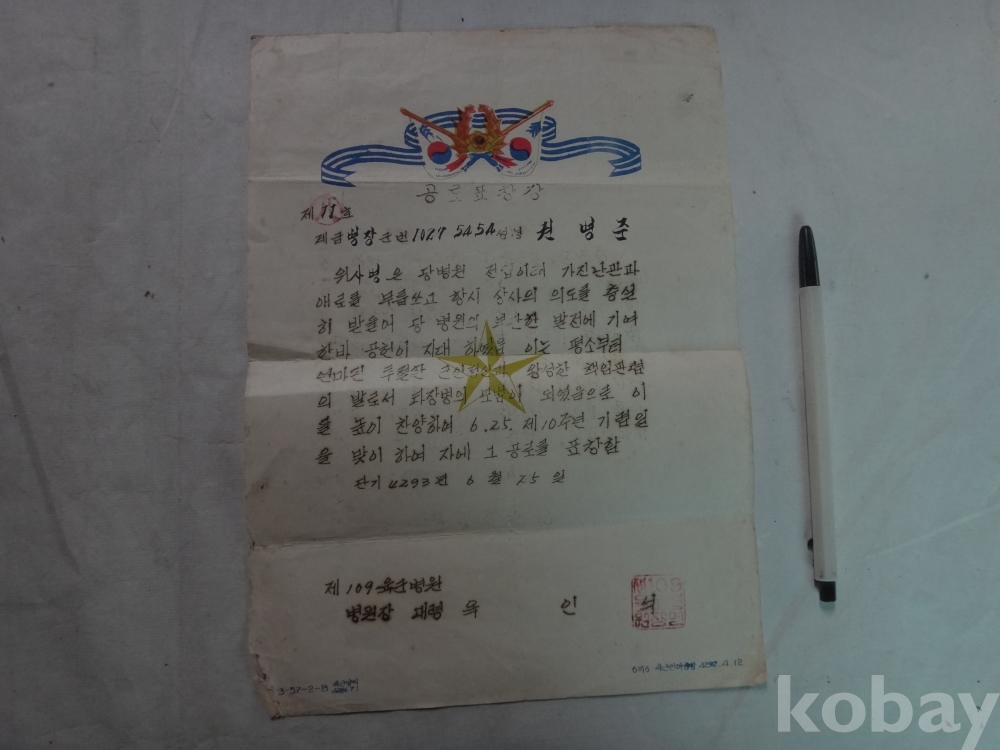 공로표창장
제 11 호
계급 병장 군번 1029 5454 성명 권 병 준
위사병은 당병원 전입이래 가진난관과
애로를 무릅쓰고 항시 상사의 의도를 충실
히 받들어 당 병원의 부단한 발전에 기여
한바 공헌이 지대 하였음 이는 평소부터
연마된 투철한 군인정신과 왕성한 책임관념
의 발로서 타장병의 모범이 되었음으로 이
를 높이 찬양하여 6.25. 제10주년 기념일
을 맞이 하여 자에 그 공로를 표창함
단기 4293년 6 월 25 일
제 109 육군병원
병원장 대령 욱 인 석
3-57-2-B
4292.4.12
kobay